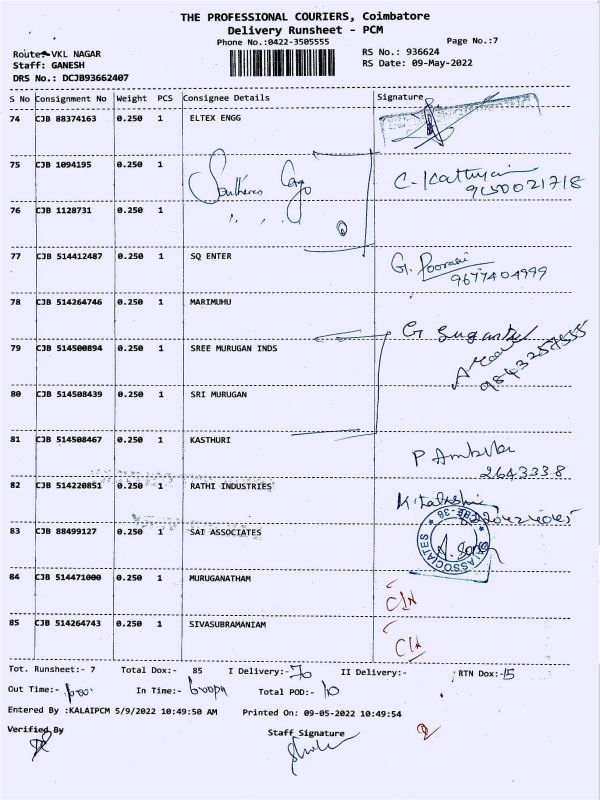 THE PROFESSIONAL COURIERS, Coimbatore
Delivery Runsheet - PCM
Phone No.:0422-3505555
Page No.:7
Route:-VKL NAGAR
RS No.: 936624
Staff: GANESH
RS Date: 09-May-2022
DRS No.: DCJB93662407
S No Consignment No Weight PCS Consignee Details Signature
74 CJB 88374163 0.250 1 ELTEX ENGG
75 CJB 1094195 0.250 1 Southern Cargo
9150021718
76 CJB 1128731 0.250 1
77 CJB 514412487 0.250 1 SQ ENTER G. Poorani
9677404999
78 CJB 514264746 0.250 1 MARIMUHU
79 CJB 514500894 0.250 1 SREE MURUGAN INDS
80 CJB 514508439 0.250 1 SRI MURUGAN
81 CJB 514508467 0.250 1 KASTHURI
2643338
82 CJB 514220851 0.250 1 RATHI INDUSTRIES
83 CJB 88499127 0.250 1 SAI ASSOCIATES
84 CJB 514471000 0.250 1 MURUGANATHAM
85 CJB 514264743 0.250 1 SIVASUBRAMANIAM
Tot. Runsheet:- 7 Total Dox:- 85 I Delivery:- 70 II Delivery:- RTN Dox:- 15
Out Time:- In Time:- 6:00pm Total POD:- 10
Entered By :KALAIPCM 5/9/2022 10:49:50 AM Printed On: 09-05-2022 10:49:54
Verified By Staff Signature